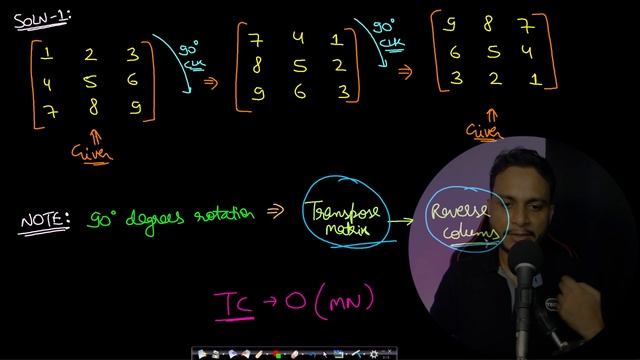 SOLN-1:
1 2 3
4 5 6
7 8 9
90°
CLK
⇒
7 4 1
8 5 2
9 6 3
90°
CLK
⇒
9 8 7
6 5 4
3 2 1
Given
Given
NOTE: 90° degrees rotation ⇒
Transpose
matrix
→
Reverse
colums
TC → O(MN)